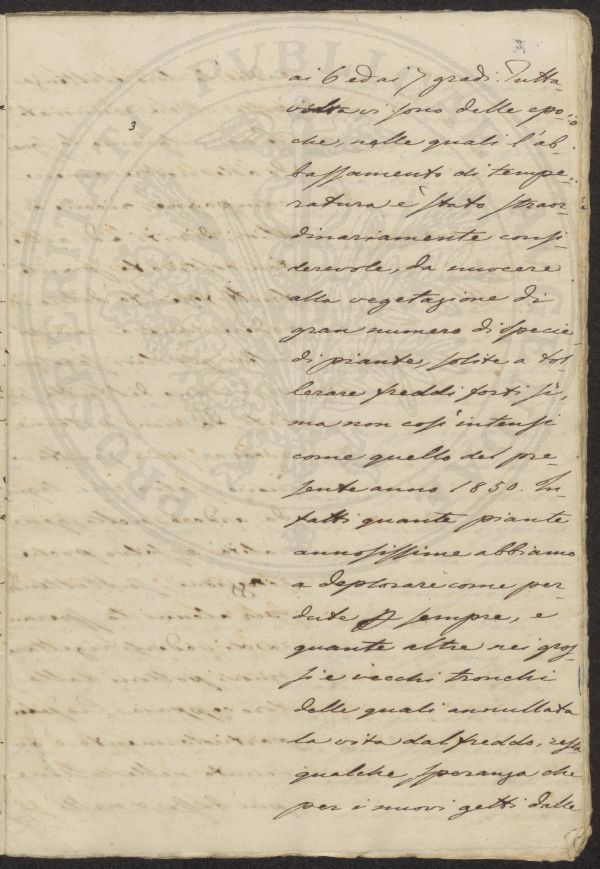 3
3
ai 6 ed ai 7 gradi. Tutta-
volta vi sono delle epo-
che, nelle quali l'ab-
bassamento di tempe-
ratura è stato straor-
dinariamente consi-
derevole, da nuocere
alla vegetazione di
gran numero di specie
di piante, solite a tol-
lerare freddi forti sì,
ma non così intensi
come quello del pre-
sente anno 1850. In-
fatti quante piante
annosissime abbiamo
a deplorare come per-
dute sempre, e
quante altre nei gros-
si e vecchi tronchi
delle quali annullata
la vita dal freddo, resta
qualche speranza che
per i nuovi getti dalle
PROSPERITATI PUBLICAE